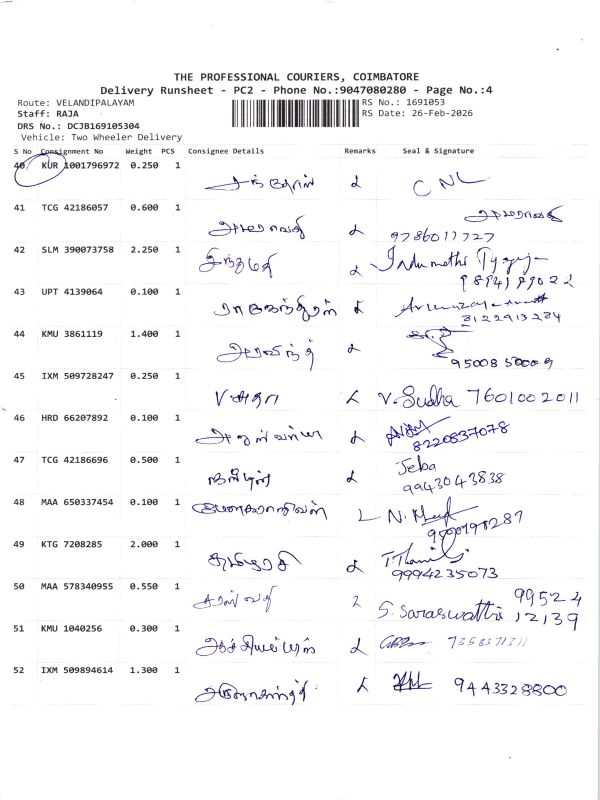 THE PROFESSIONAL COURIERS, COIMBATORE
Delivery Runsheet - PC2 - Phone No.:9047080280 - Page No.:4
Route: VELANDIPALAYAM RS No.: 1691053
Staff: RAJA RS Date: 26-Feb-2026
DRS No.: DCJB169105304
Vehicle: Two Wheeler Delivery
S No Consignment No Weight PCS Consignee Details Remarks Seal & Signature
40 KUR 1001796972 0.250 1
CNL
41 TCG 42186057 0.600 1
அமராவதி 9786011727
42 SLM 390073758 2.250 1
இந்துமதி Indumathi
43 UPT 4139064 0.100 1
ராஜேந்திரன் 8122913284
44 KMU 3861119 1.400 1
அரவிந்த் 9500850009
45 IXM 509728247 0.250 1
V சுதா V. Sudha 7601002011
46 HRD 66207892 0.100 1
8220837078
47 TCG 42186696 0.500 1
Jeba
9943043838
48 MAA 650337454 0.100 1
49 KTG 7208285 2.000 1
தமிழரசி
9994235073
50 MAA 578340955 0.550 1
சரஸ்வதி S. Saraswathi 99524
12139
51 KMU 1040256 0.300 1
7358371311
52 IXM 509894614 1.300 1
9443328800